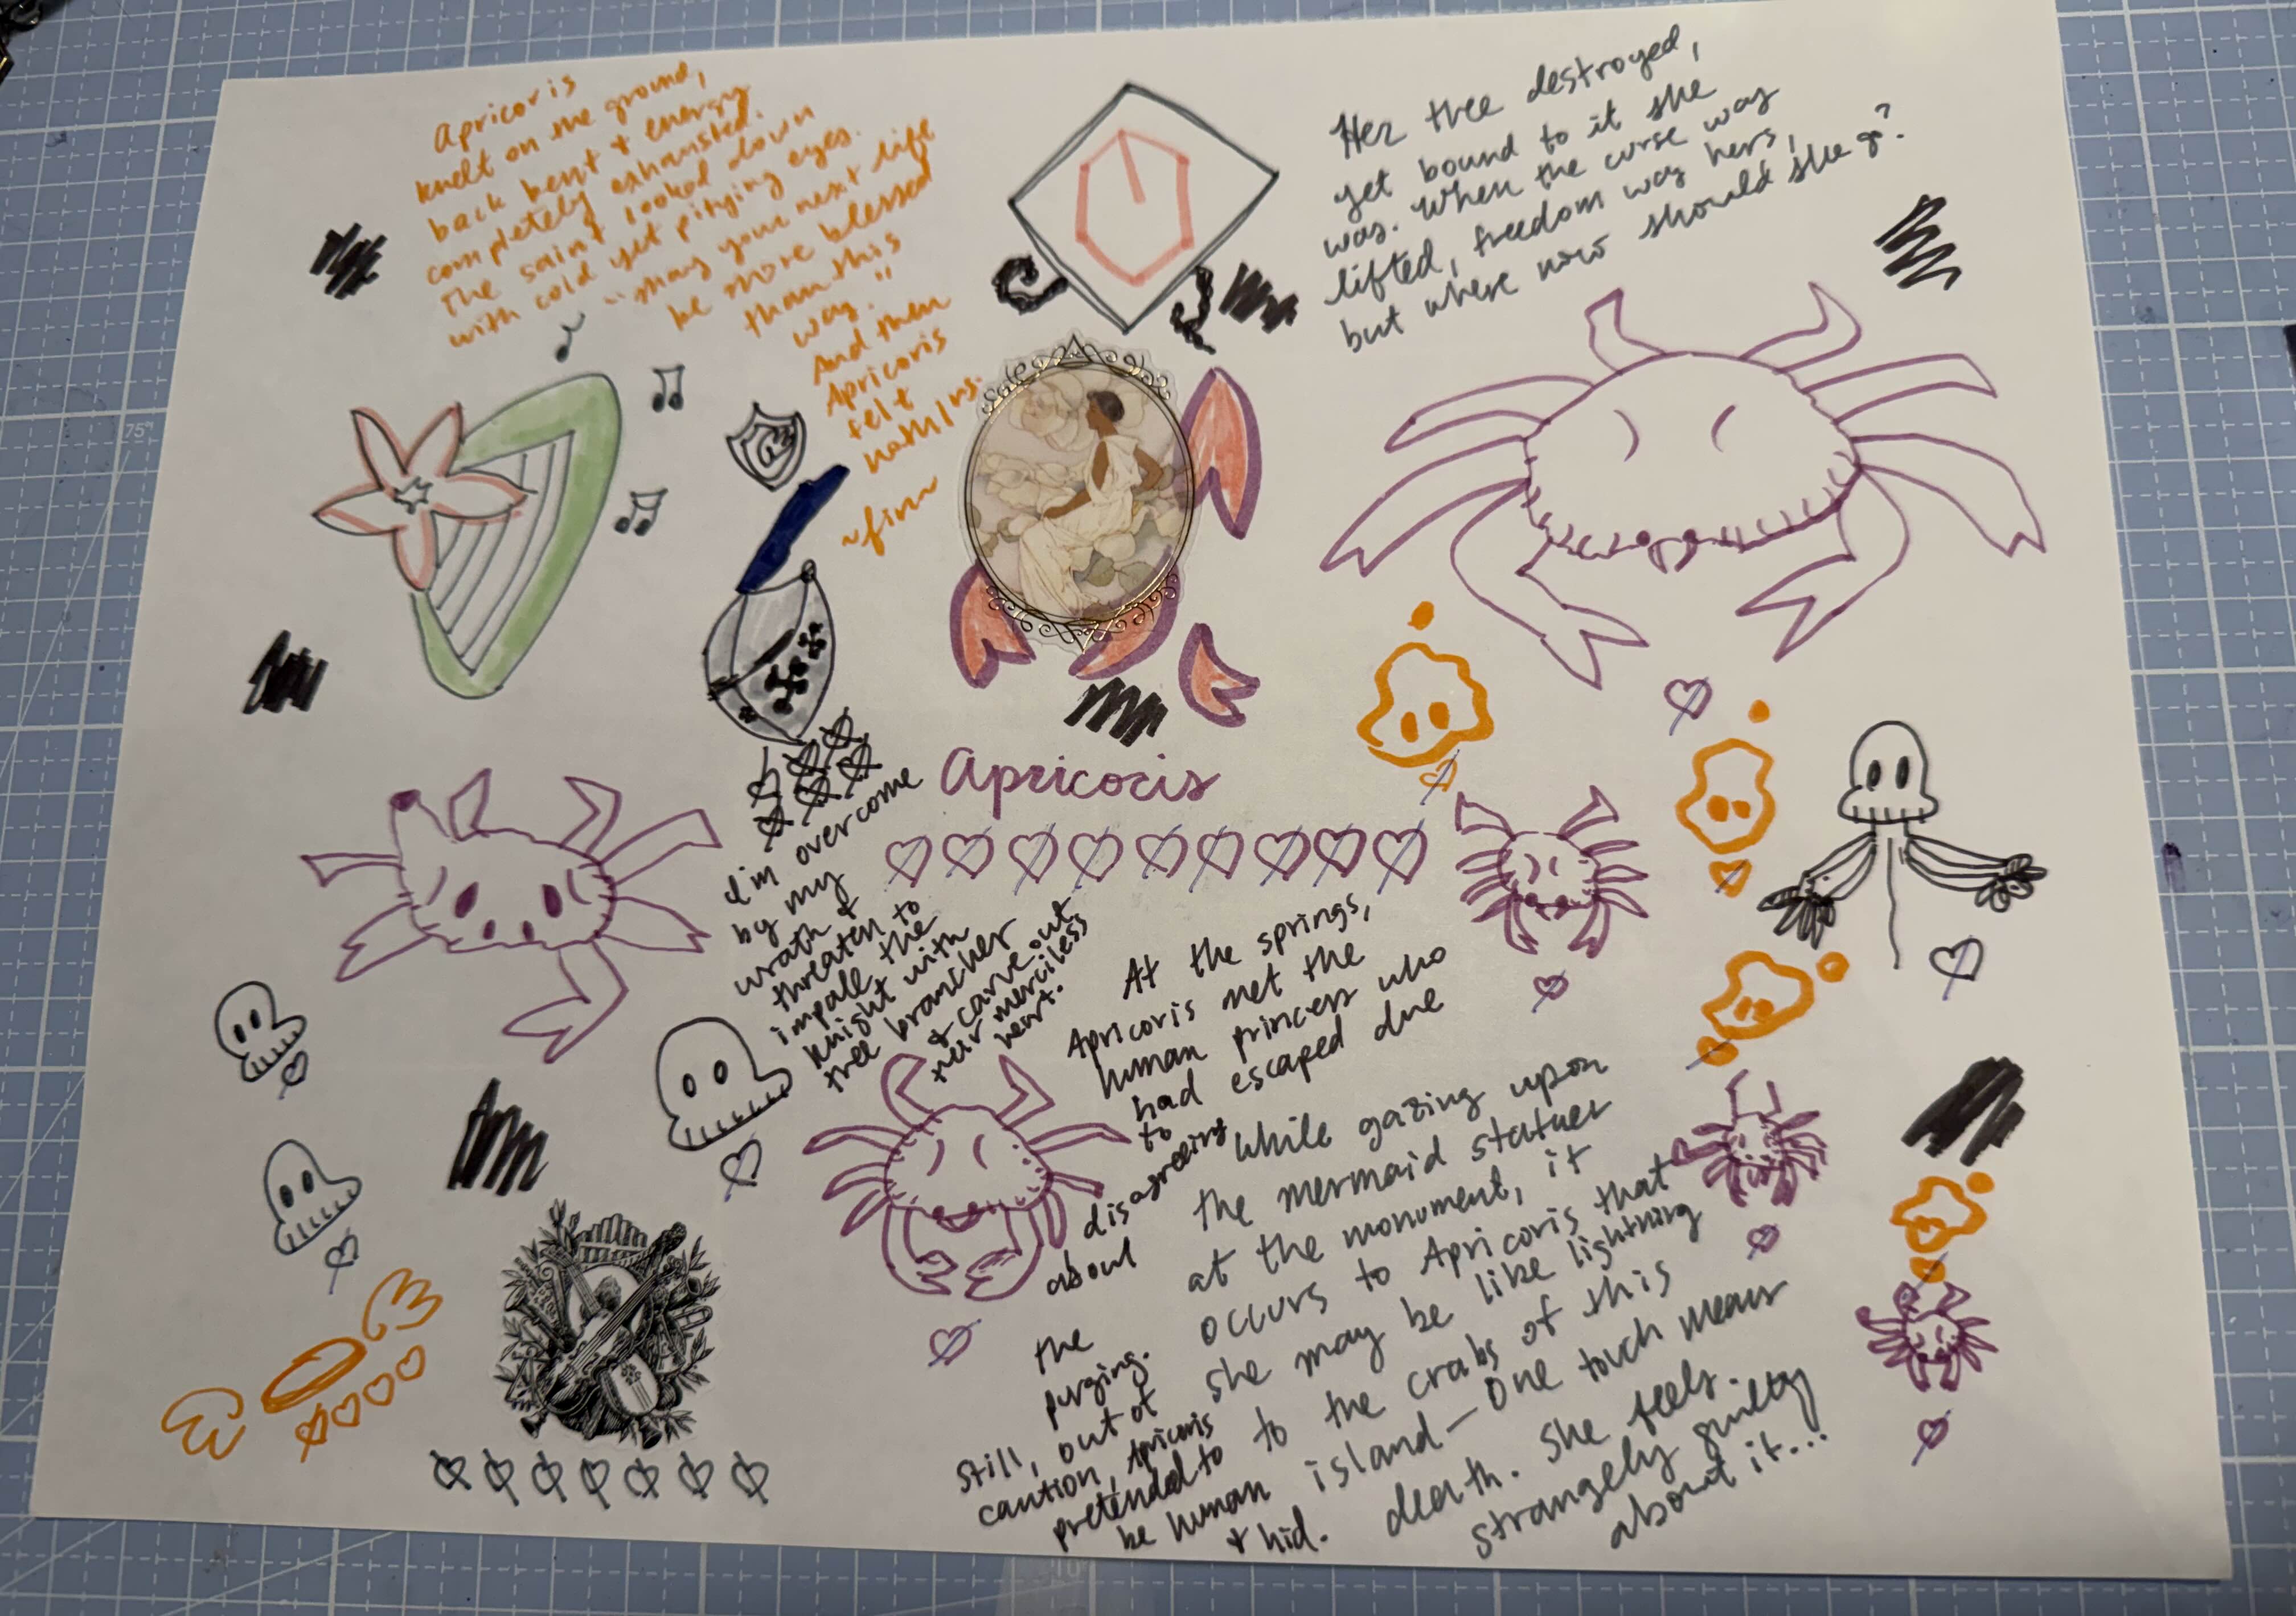 Apricoris
knelt on the ground,
back bent & energy
completely exhausted.
The saint looked down
with cold yet pitying eyes.
"may your next life
be more blessed
than this
way."
And then
Apricoris
felt
~fin~
Her tree destroyed,
yet bound to it she
was. When the curse was
lifted, freedom was hers,
but where now should she go?
Apricoris
I'm overcome
by my
wrath &
threaten to
impale the
knight with
tree branches
& carve out
their merciless
heart.
At the springs,
Apricoris met the
human princess who
had escaped due
to
disagreeing
about
the
purging.
Still, out of
caution, Apricoris
pretended to
be human
& hid.
While gazing upon
the mermaid statues
at the monument, it
occurs to Apricoris that
she may be like lightning
to the crabs of this
island—One touch means
death. She feels
strangely guilty
about it...
75°